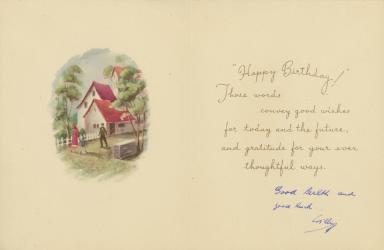 "Happy Birthday!"
Those words
convey good wishes
for today and the future,
and gratitude for your ever
thoughtful ways.
Good health and
good luck